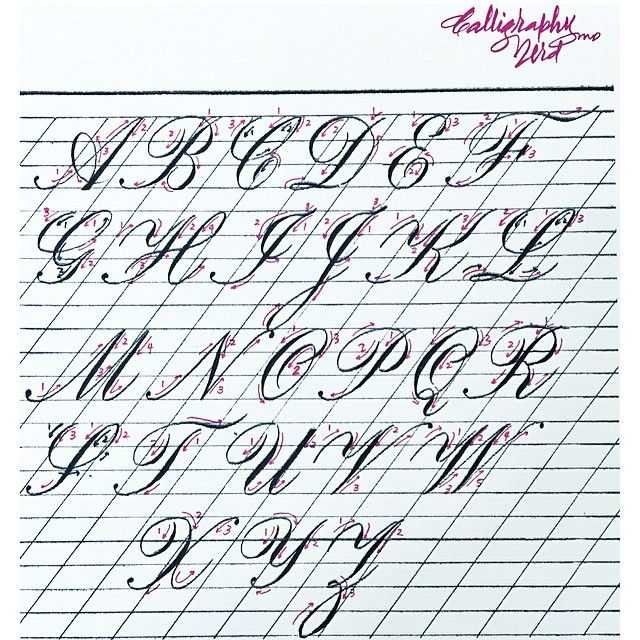 Calligraphy
Nerd mo
A B C D E F
G H I J K L
M N O P Q R
S T U V W
X Y Z